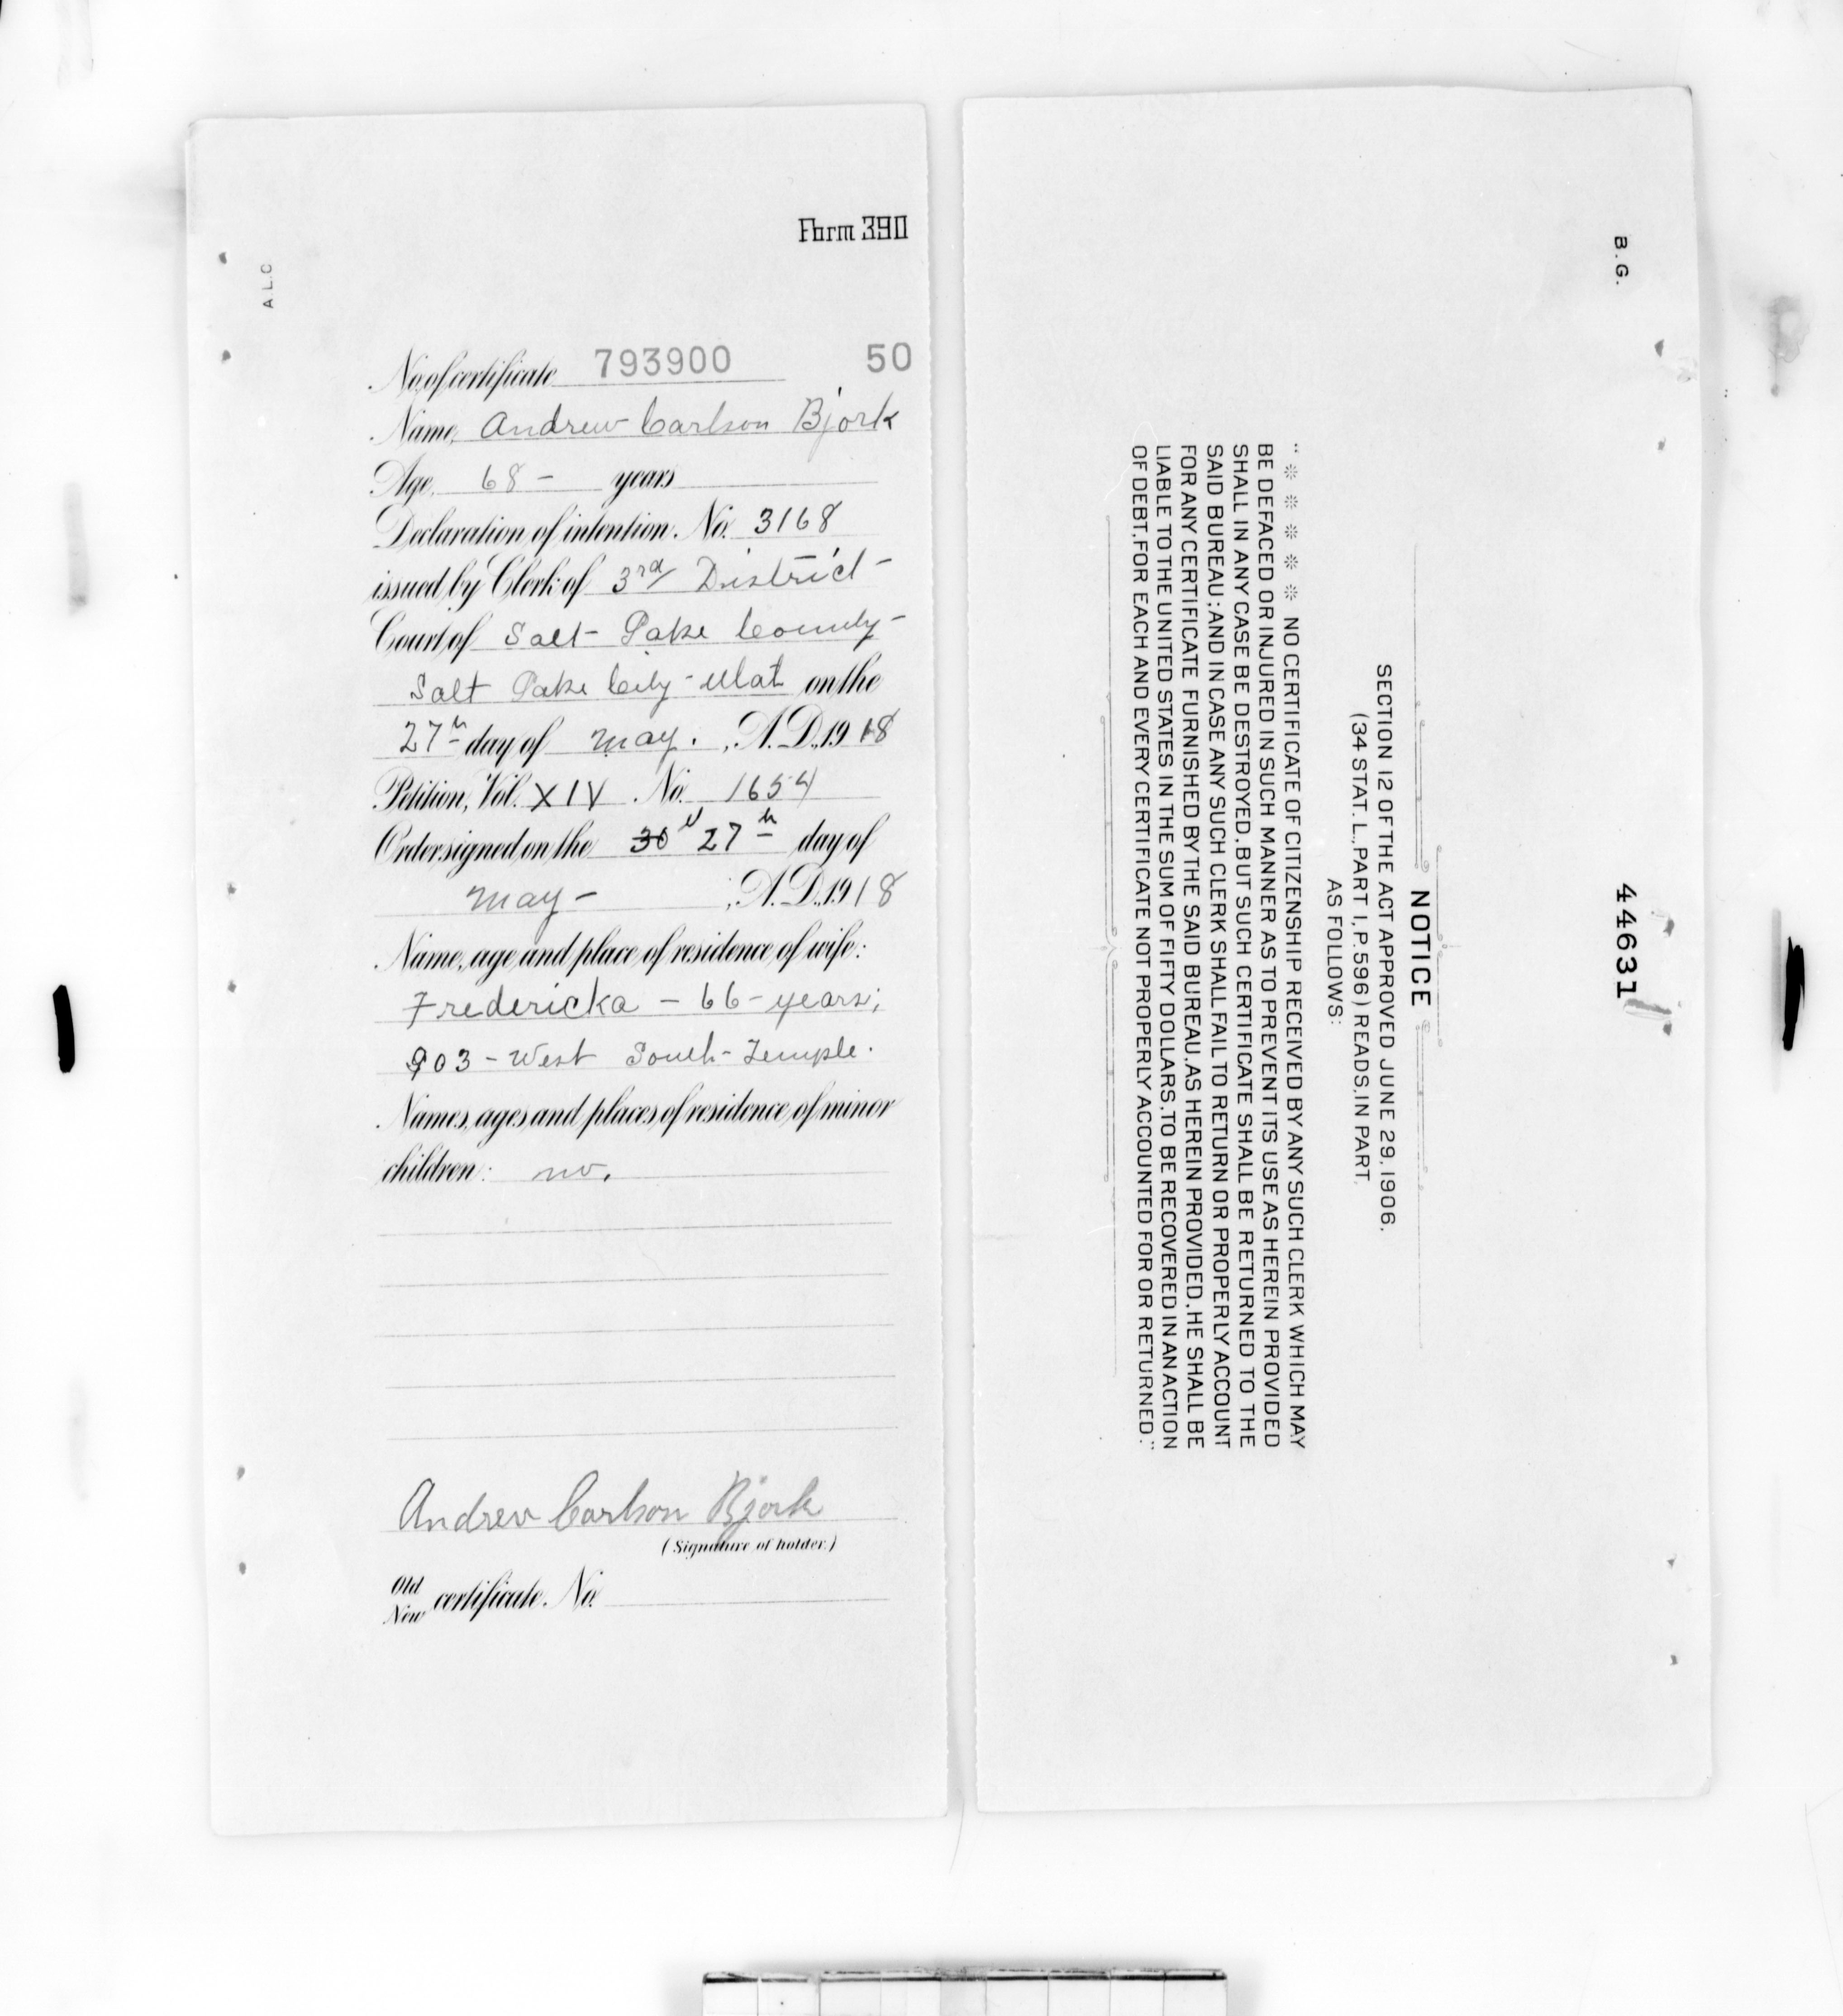 Form 390
A L C
No. of certificate 793900 50
Name, Andrew Carlson Bjork
Age, 68 - years
Declaration of intention. No. 3168
issued by Clerk of 3rd District -
Court of Salt - Lake County -
Salt Lake City - Utah on the
27th day of May . , A.D., 1918
Petition, Vol. XIV . No. 1654
Order signed on the 30 27th day of
May - , A.D., 1918
Name, age and place of residence of wife:
Fredericka - 66 - years;
903 - West South - Temple.
Names, ages and places of residence of minor
children: no.
Andrew Carlson Bjork
(Signature of holder.)
Old
New certificate. No.
B. G.
44631
NOTICE
SECTION 12 OF THE ACT APPROVED JUNE 29, 1906.
(34 STAT. L., PART I, P. 596) READS, IN PART,
AS FOLLOWS:
"※ ※ ※ ※ ※ NO CERTIFICATE OF CITIZENSHIP RECEIVED BY ANY SUCH CLERK WHICH MAY
BE DEFACED OR INJURED IN SUCH MANNER AS TO PREVENT ITS USE AS HEREIN PROVIDED
SHALL IN ANY CASE BE DESTROYED, BUT SUCH CERTIFICATE SHALL BE RETURNED TO THE
SAID BUREAU; AND IN CASE ANY SUCH CLERK SHALL FAIL TO RETURN OR PROPERLY ACCOUNT
FOR ANY CERTIFICATE FURNISHED BY THE SAID BUREAU, AS HEREIN PROVIDED, HE SHALL BE
LIABLE TO THE UNITED STATES IN THE SUM OF FIFTY DOLLARS, TO BE RECOVERED IN AN ACTION
OF DEBT, FOR EACH AND EVERY CERTIFICATE NOT PROPERLY ACCOUNTED FOR OR RETURNED."